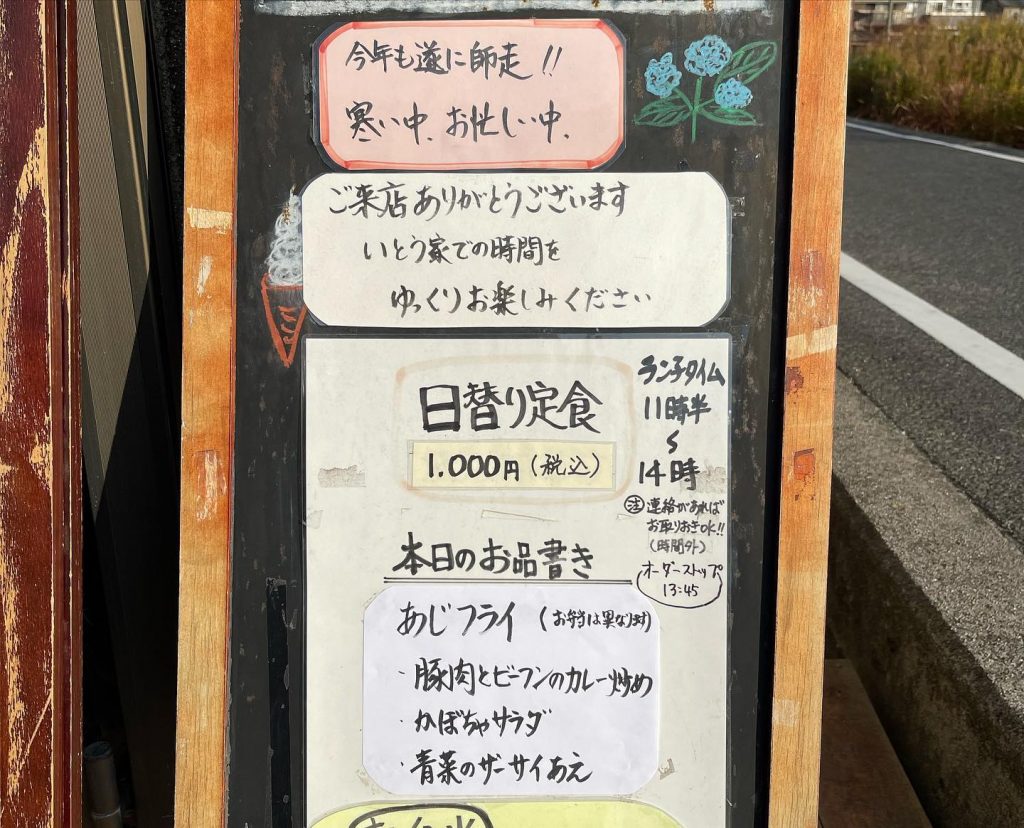 今年も遂に師走!!
寒い中、お忙しい中、
ご来店ありがとうございます
いとう家での時間を
ゆっくりお楽しみください
日替り定食
1.000円(税込)
ランチタイム
11時半
〜
14時
注 連絡があれば
お取りおきOK!!
(時間外)
オーダーストップ
13:45
本日のお品書き
あじフライ(お弁当は異なります)
・豚肉とビーフンのカレー炒め
・かぼちゃサラダ
・青菜のザーサイあえ